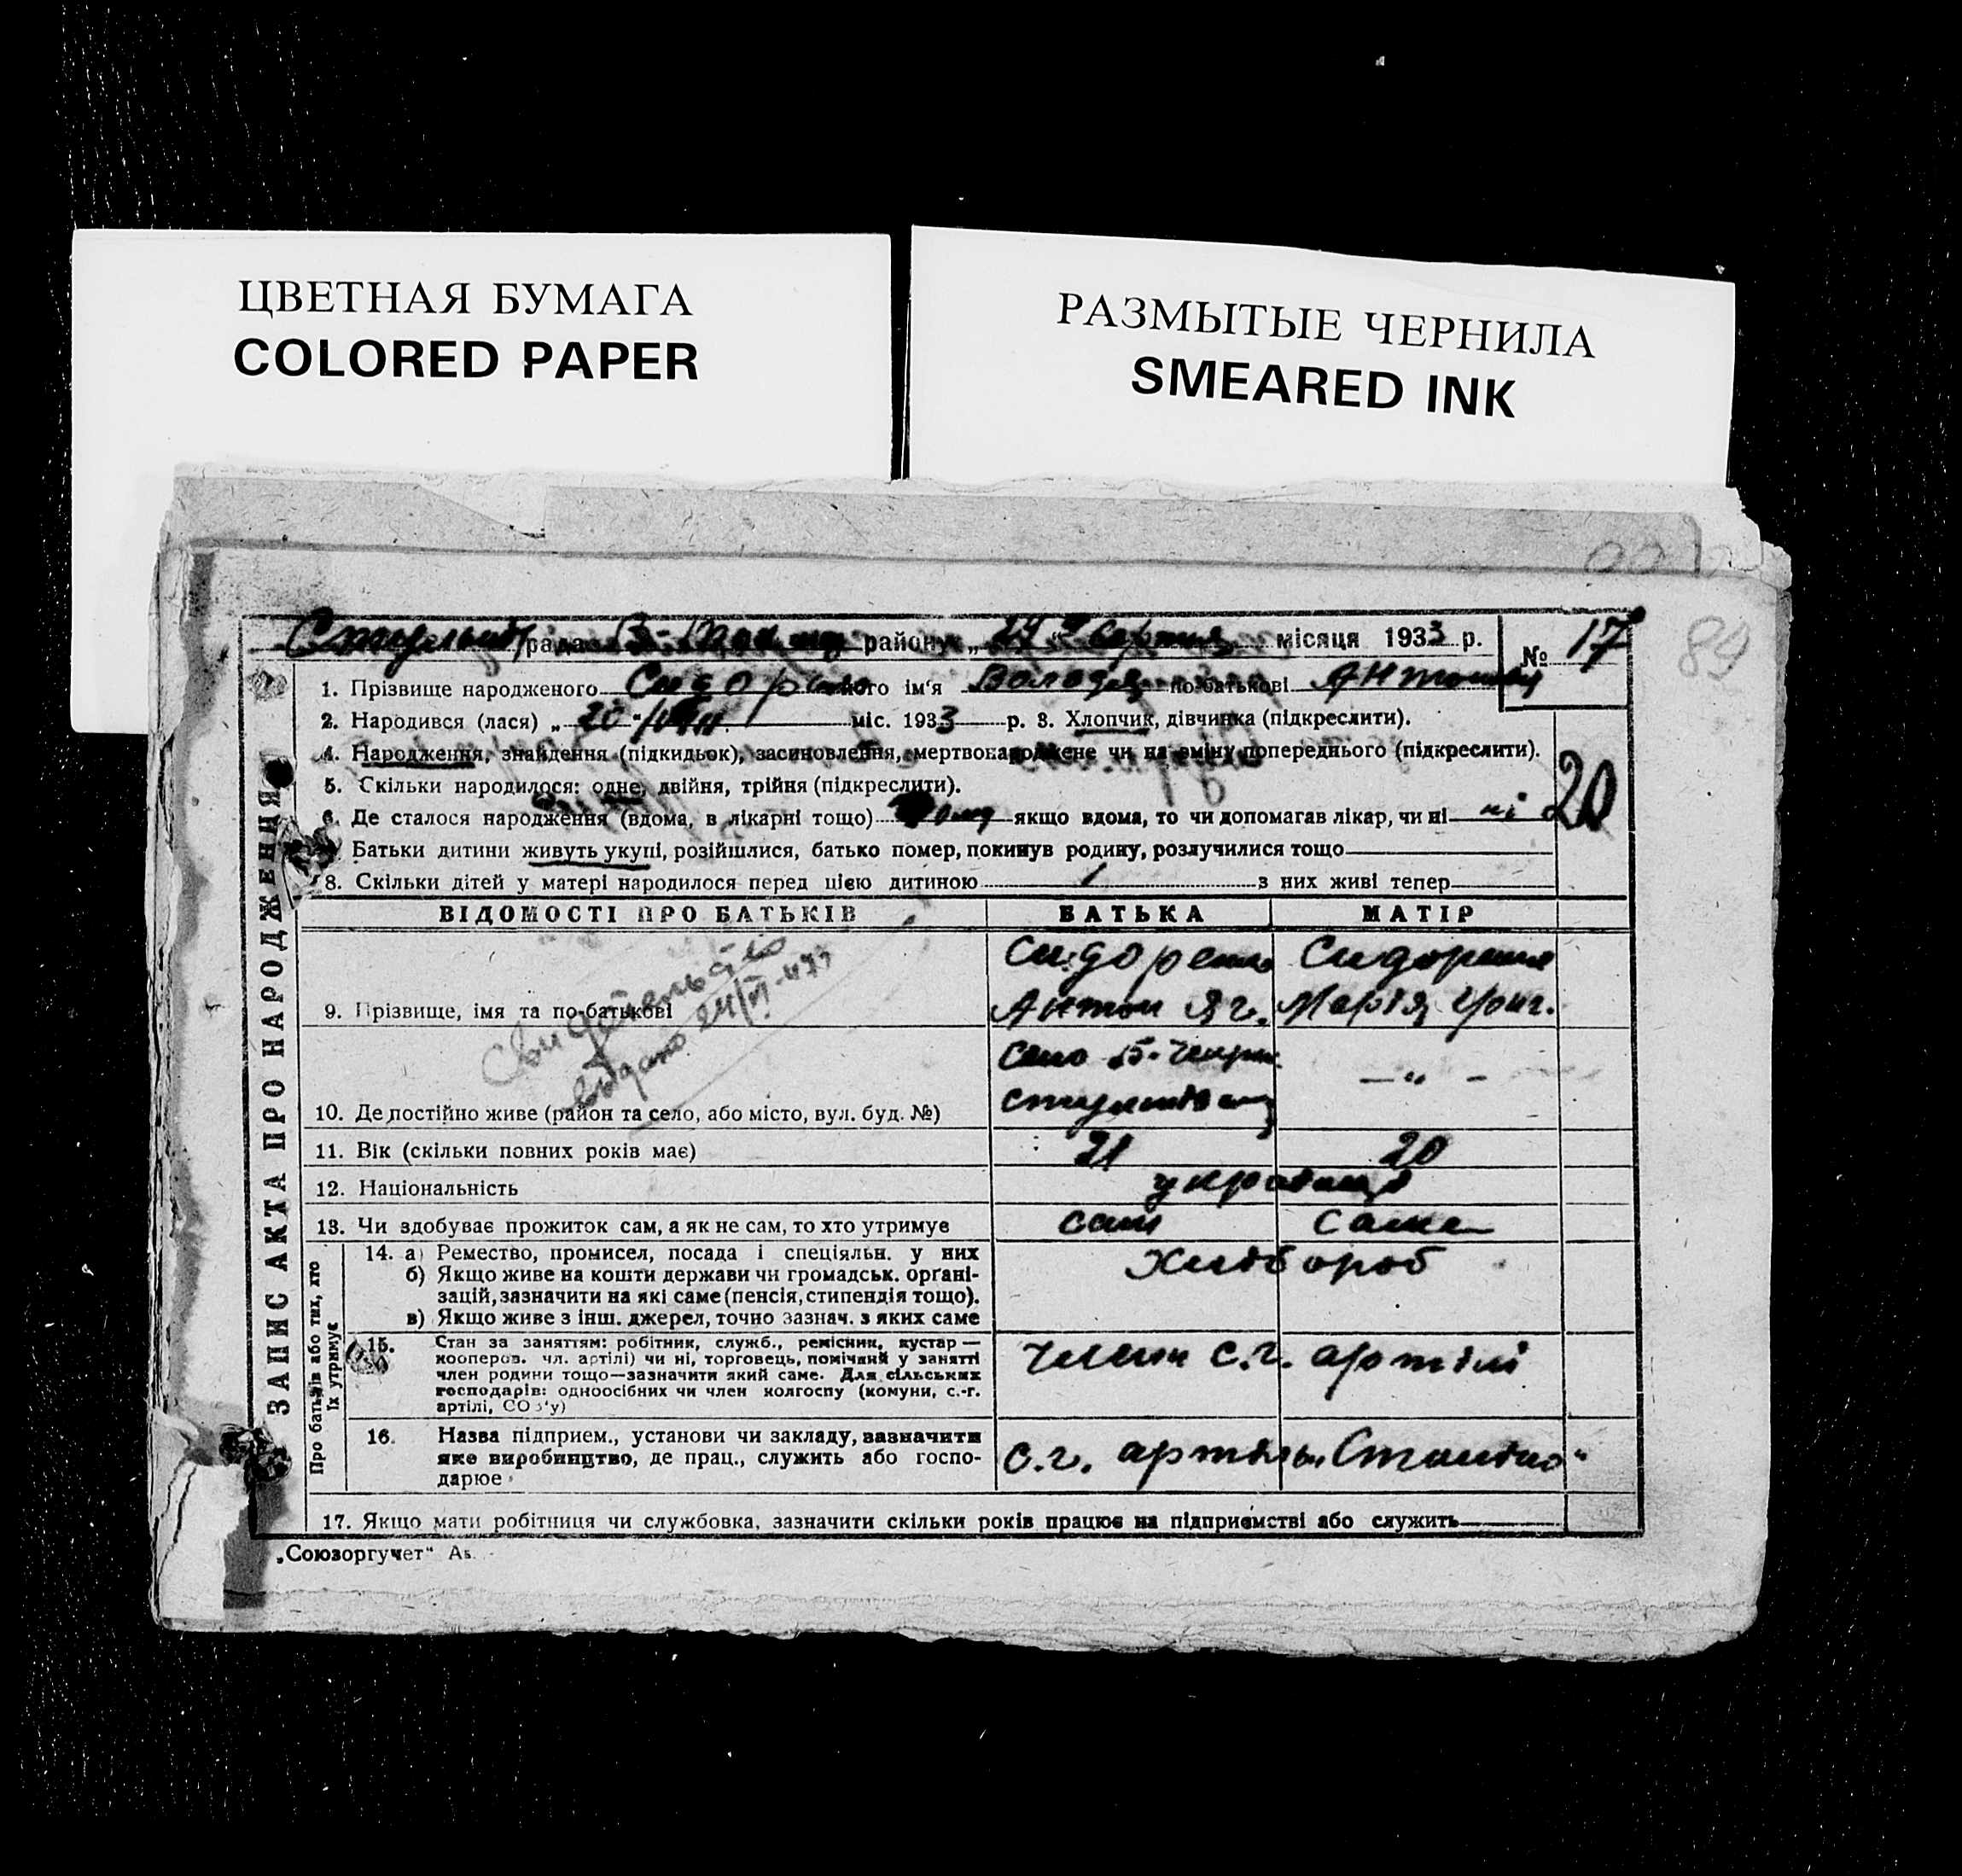 ЦВЕТНАЯ БУМАГА
COLORED PAPER
РАЗМЫТЫЕ ЧЕРНИЛА
SMEARED INK
89
рада району „ 24 “ місяця 1933 р.
№ 17
1. Прізвище народженого Сидоренко його ім‘я Володим по-батькові Антонов
2. Народився (лася) „ 20 “ міс. 1933 р. 3. Хлопчик, дівчинка (підкреслити).
4. Народження, знайдення (підкидьок), засиновлення, мертвонароджене чи на зміну попереднього (підкреслити).
5. Скільки народилося: одне, двійня, трійня (підкреслити).
20
6. Де сталося народження (вдома, в лікарні тощо) вдома якщо вдома, то чи допомагав лікар, чи ні ні
Батьки дитини живуть укупі, розійшлися, батько помер, покинув родину, розлучилися тощо
8. Скільки дітей у матері народилося перед цією дитиною 1 з них живі тепер
ЗАПИС АКТА ПРО НАРОДЖЕННЯ
ВІДОМОСТІ ПРО БАТЬКІВ БАТЬКА МАТІР
Сидоренко Сидоренко
9. Прізвище, імя та по-батькові Антон Яг. Марія
видано 24/VI
село
10. Де постійно живе (район та село, або місто, вул. буд. №) — " —
11. Вік (скільки повних років має) 21 20
12. Національність українці
13. Чи здобуває прожиток сам, а як не сам, то хто утримує сам сама
Про батьків або тих, хто
їх утримує
14. а) Ремество, промисел, посада і спеціяльн. у них Хлібороб
б) Якщо живе на кошти держави чи громадськ. орґані-
зацій, зазначити на які саме (пенсія, стипендія тощо).
в) Якщо живе з інш. джерел, точно зазнач. з яких саме
15. Стан за заняттям: робітник, служб., ремісник, кустар —
кооперов. чл. артілі) чи ні, торговець, помічний у занятті
член родини тощо—зазначити який саме. Для сільських
господарів: одноосібних чи член колгоспу (комуни, с.-г.
артілі, СОЗ‘у)
Члени с.г. артілі
16. Назва підприєм., установи чи закладу, зазначити
яке виробництво, де прац., служить або госпо-
дарює
с.г. артіль
17. Якщо мати робітниця чи службовка, зазначити скільки років працює на підприємстві або служить
„Союзоргучет“